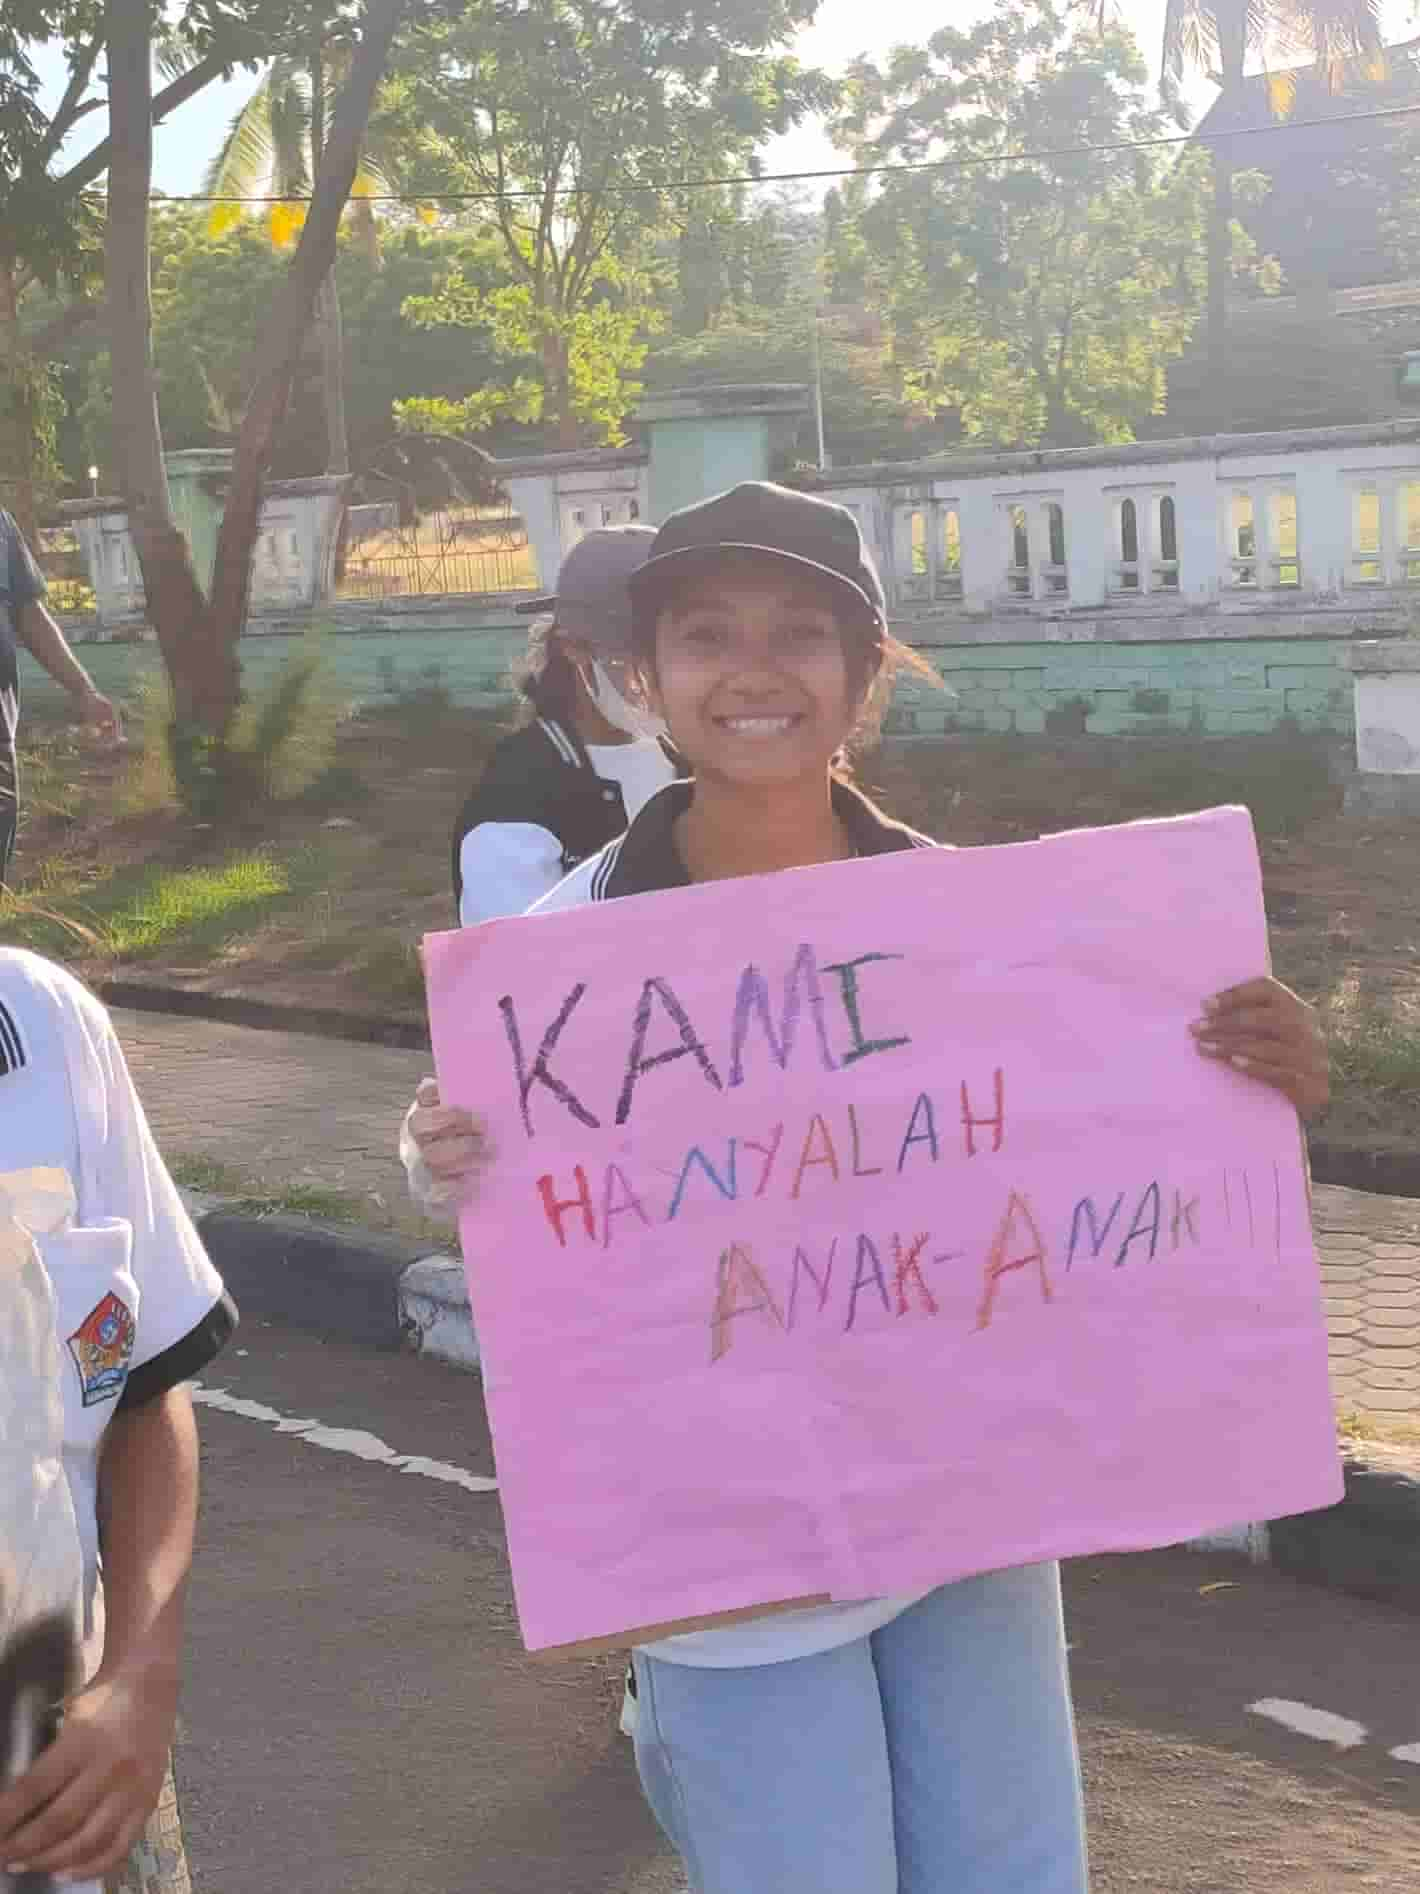 KAMI
HANYALAH
ANAK-ANAK!!!